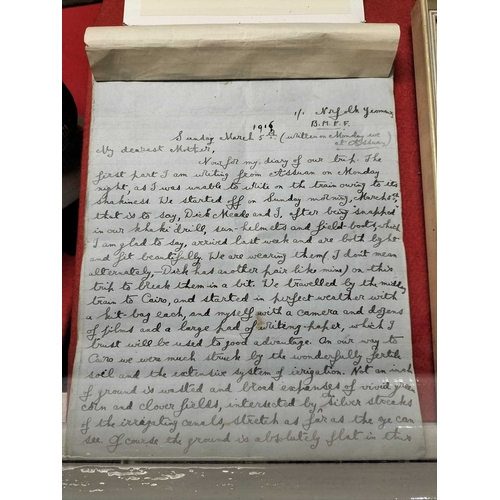 1/1 Norfolk Yeomanry
B.M.E.F.
1916
Sunday March 5th (written on Monday eve
at Assuan)
My dearest Mother,
Now for my diary of our trip. The
first part I am writing from Assuan on Monday
night, as I was unable to write on the train owing to its
shakiness. We started off on Sunday morning, March 5th,
that is to say, Dick Meade and I, after being snapped
in our khaki drill, sun-helmets and field-boots, which
I am glad to say, arrived last week and are both light
and fit beautifully. We are wearing them, (I don't mean
alternately, - Dick has another pair like mine) on this
trip to break them in a bit. We travelled by the midday
train to Cairo, and started in perfect weather with
a kit-bag each, and myself with a camera and dozens
of films and a large pad of writing-paper, which I
trust will be used to good advantage. On our way to
Cairo we were much struck by the wonderfully fertile
soil and the extensive system of irrigation. Not an inch
of ground is wasted and broad expanses of vivid green
corn and clover fields, intersected by the silver streaks
of the irrigating canals, stretch as far as the eye can
see. Of course the ground is absolutely flat in this